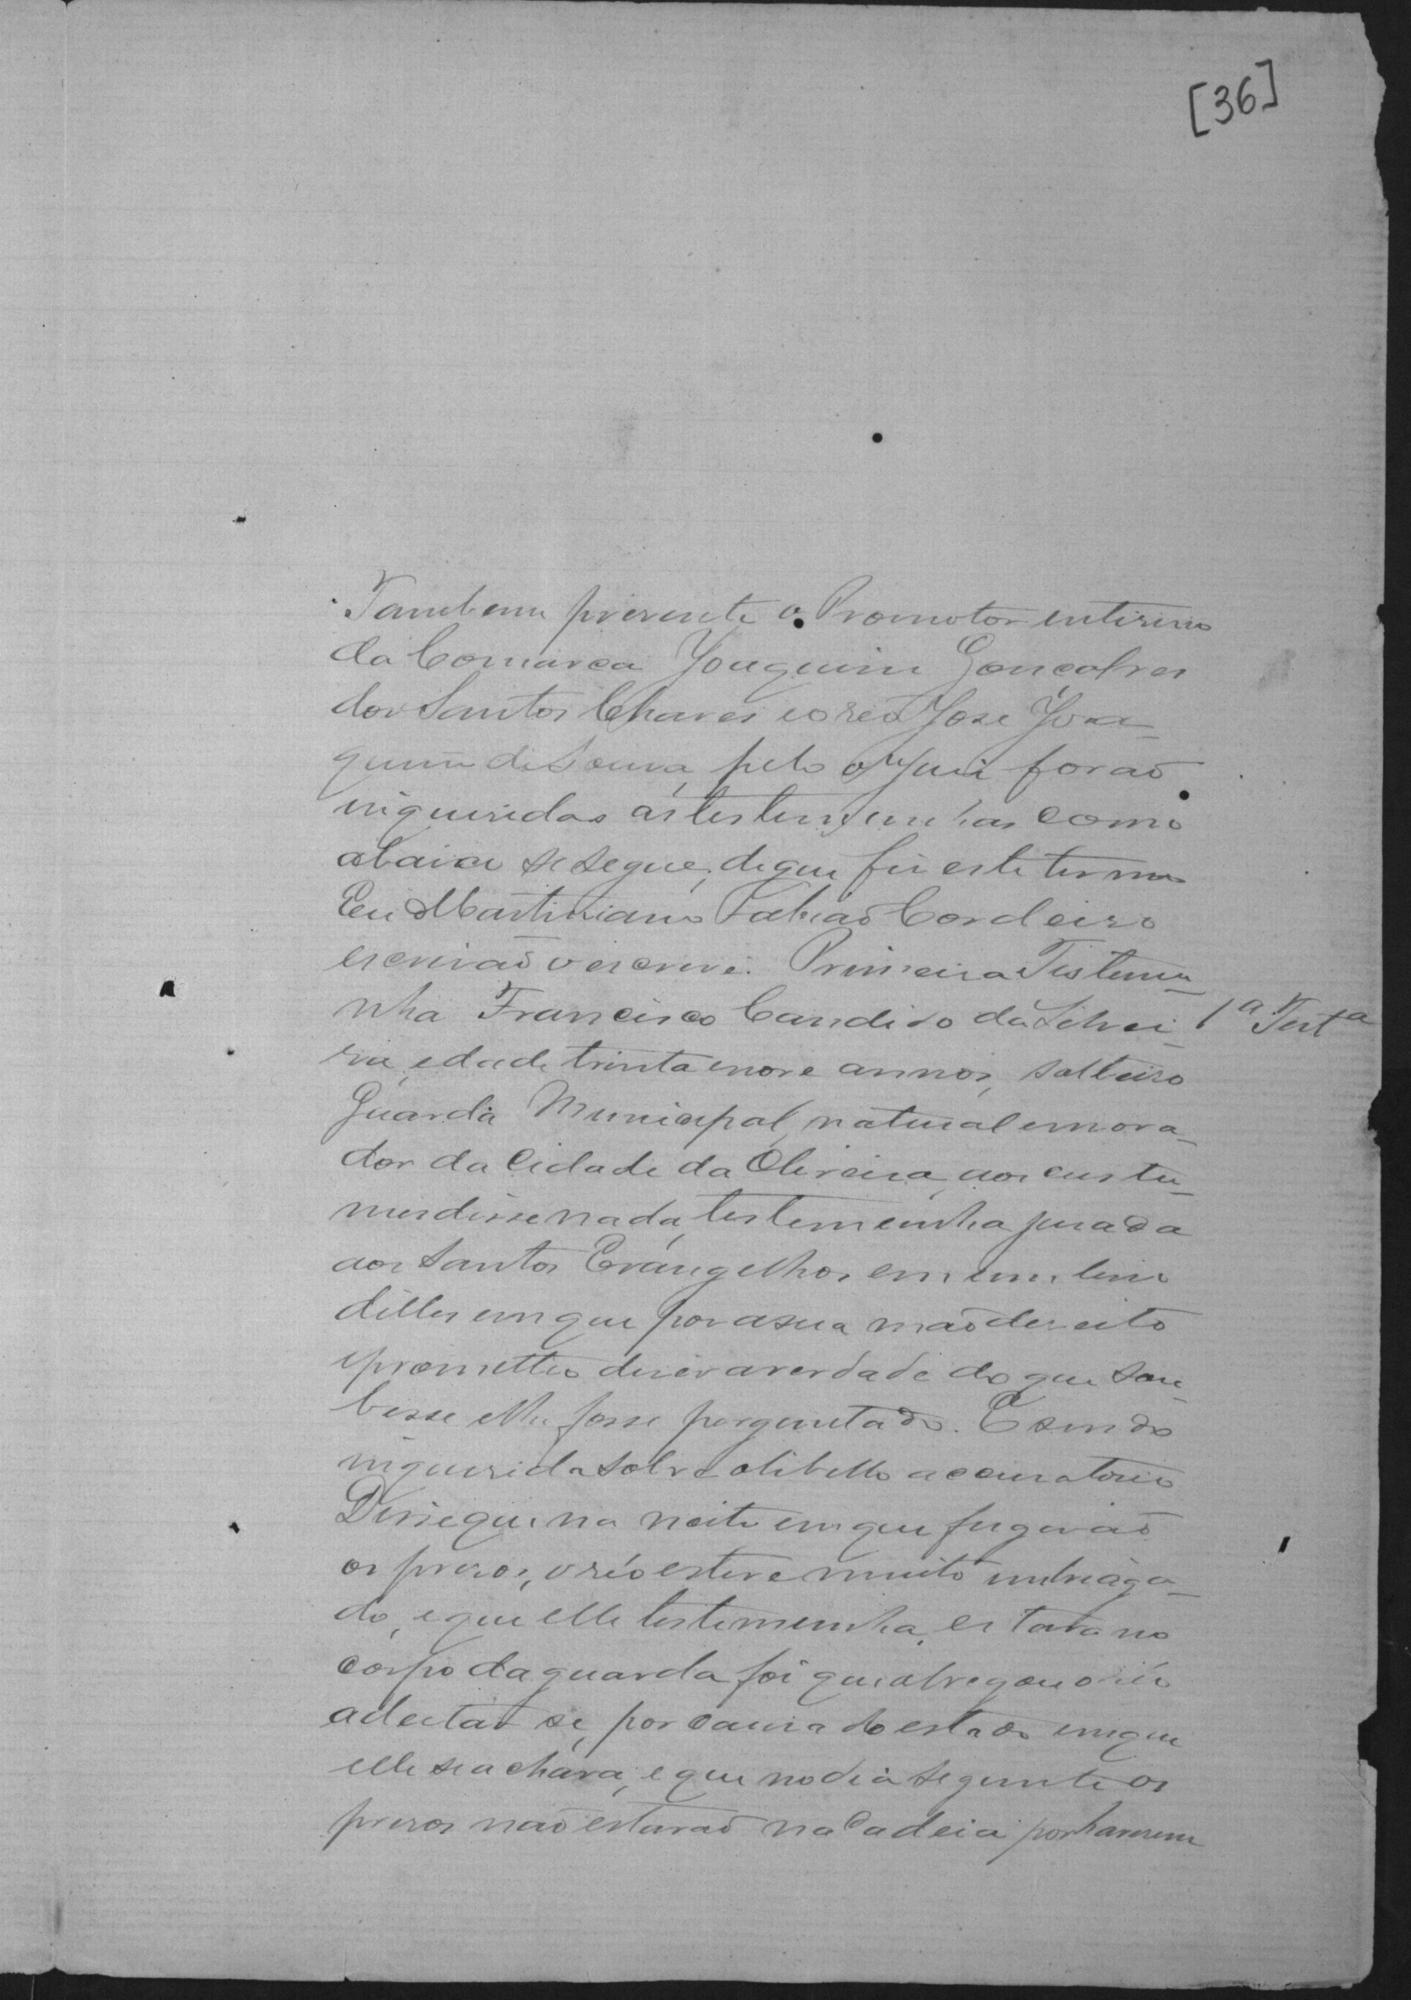 [36]
Tambem presente o Promotor enterino
da Comarca Joaquim Goncalves
dos Santos Chaves eo reo Jose Joa-
quim de Souza, pelo o Juis forão
inqueridas as testemunhas como
abaixo se segue, de que fis este termo
Eu Martiniano Fabiaõ Cordeiro
escrivaõ o escrevi. Primeira Testemu-
nha Francisco Candido da Silvei- 1ª Testª
ra, edade trinta enove annos, solteiro
Guarda Municipal, natural emora-
dor da Cidade da Oliveira, aos custu-
mes disse nada, testemunha jurada
aos Santos Evangelhos em um livro
delles em que pos a sua maõ dereita
eprometteo diser averdade do que sou-
besse elhe fosse perguntado. E sendo
inquerida sobre olibello accusatorio
Disse que na noite em que fugiraõ
os presos, o réo esteve muito imbriaga-
do, e que elle testemunha, estava no
corpo da guarda foi que obregou o réo
adeitar se, por causa do estado em que
elle se achava, e que no dia seguinte os
presos naõ estavaõ na Cadeia por haverem